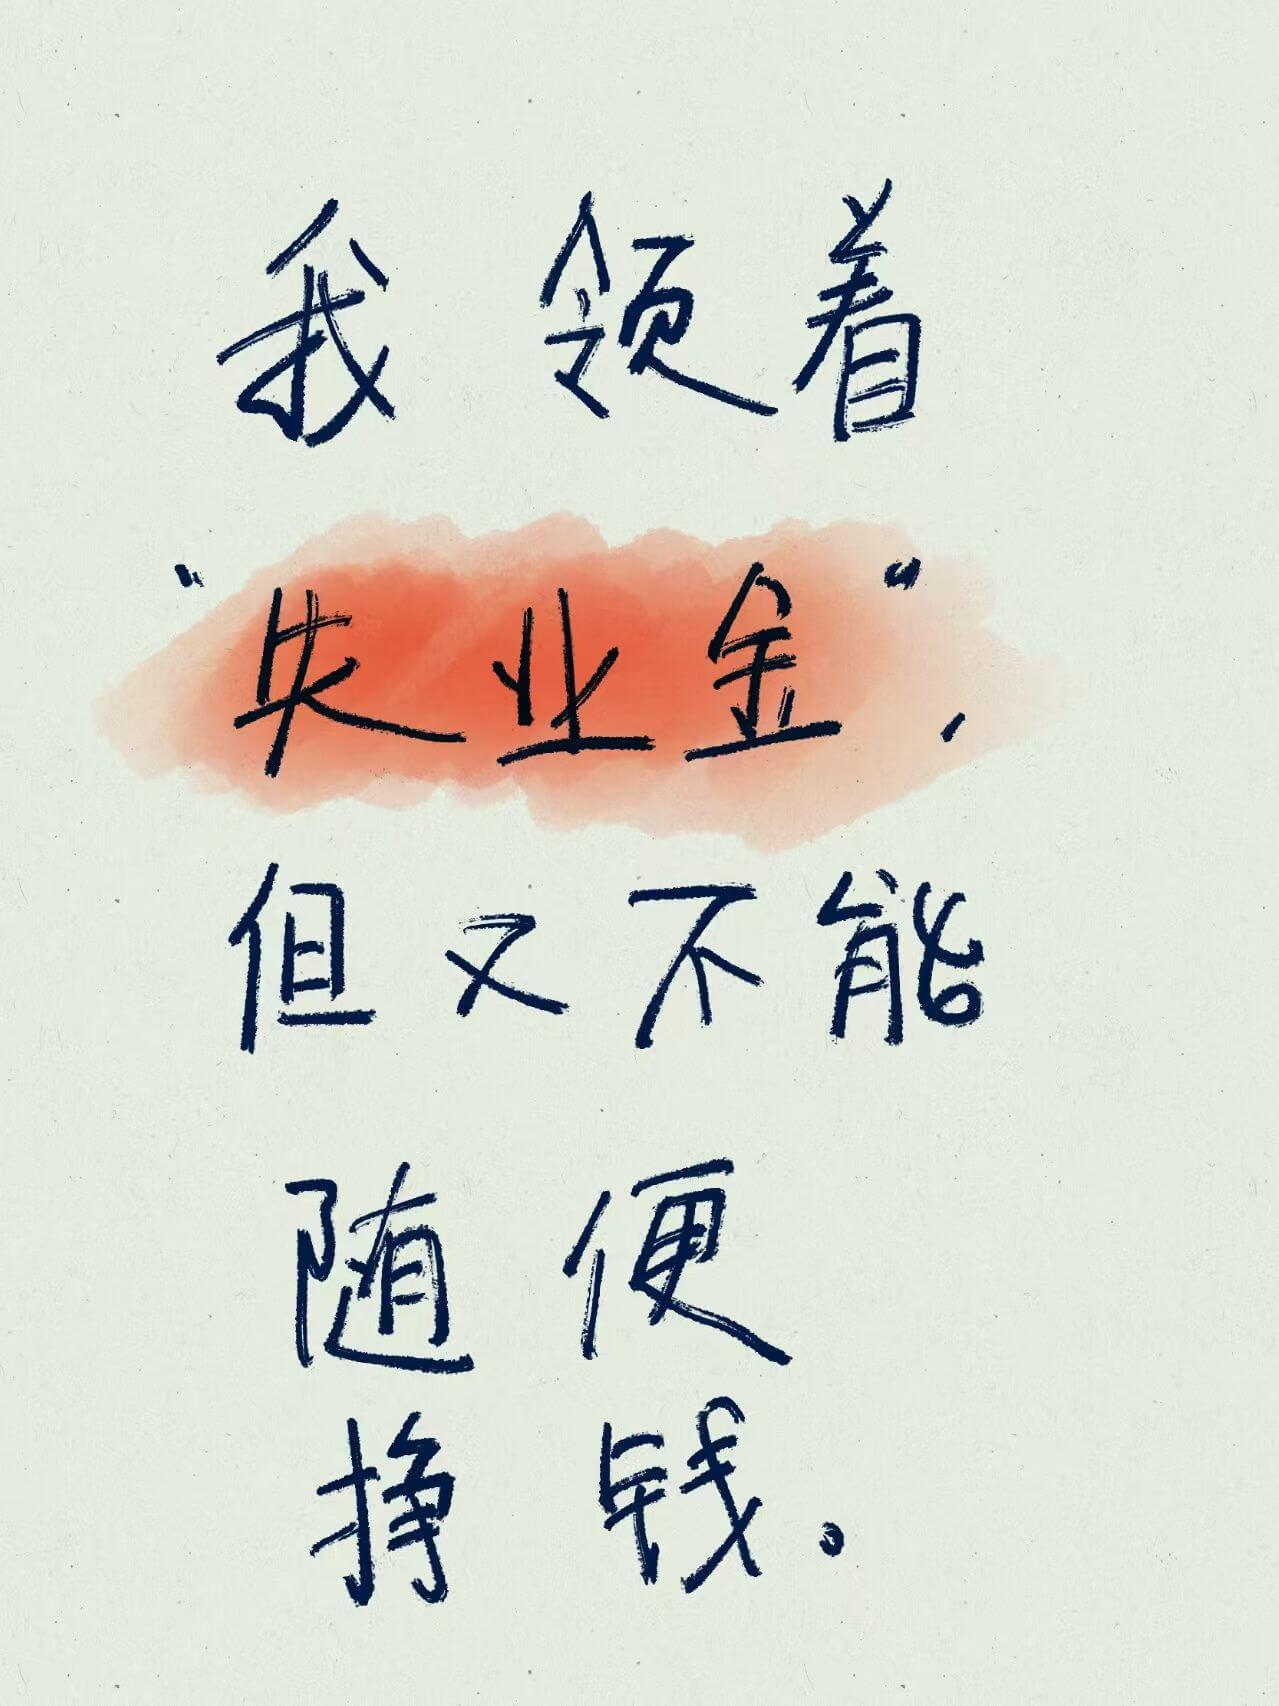 我领着
“失业金”，
但又不能
随便
挣钱。